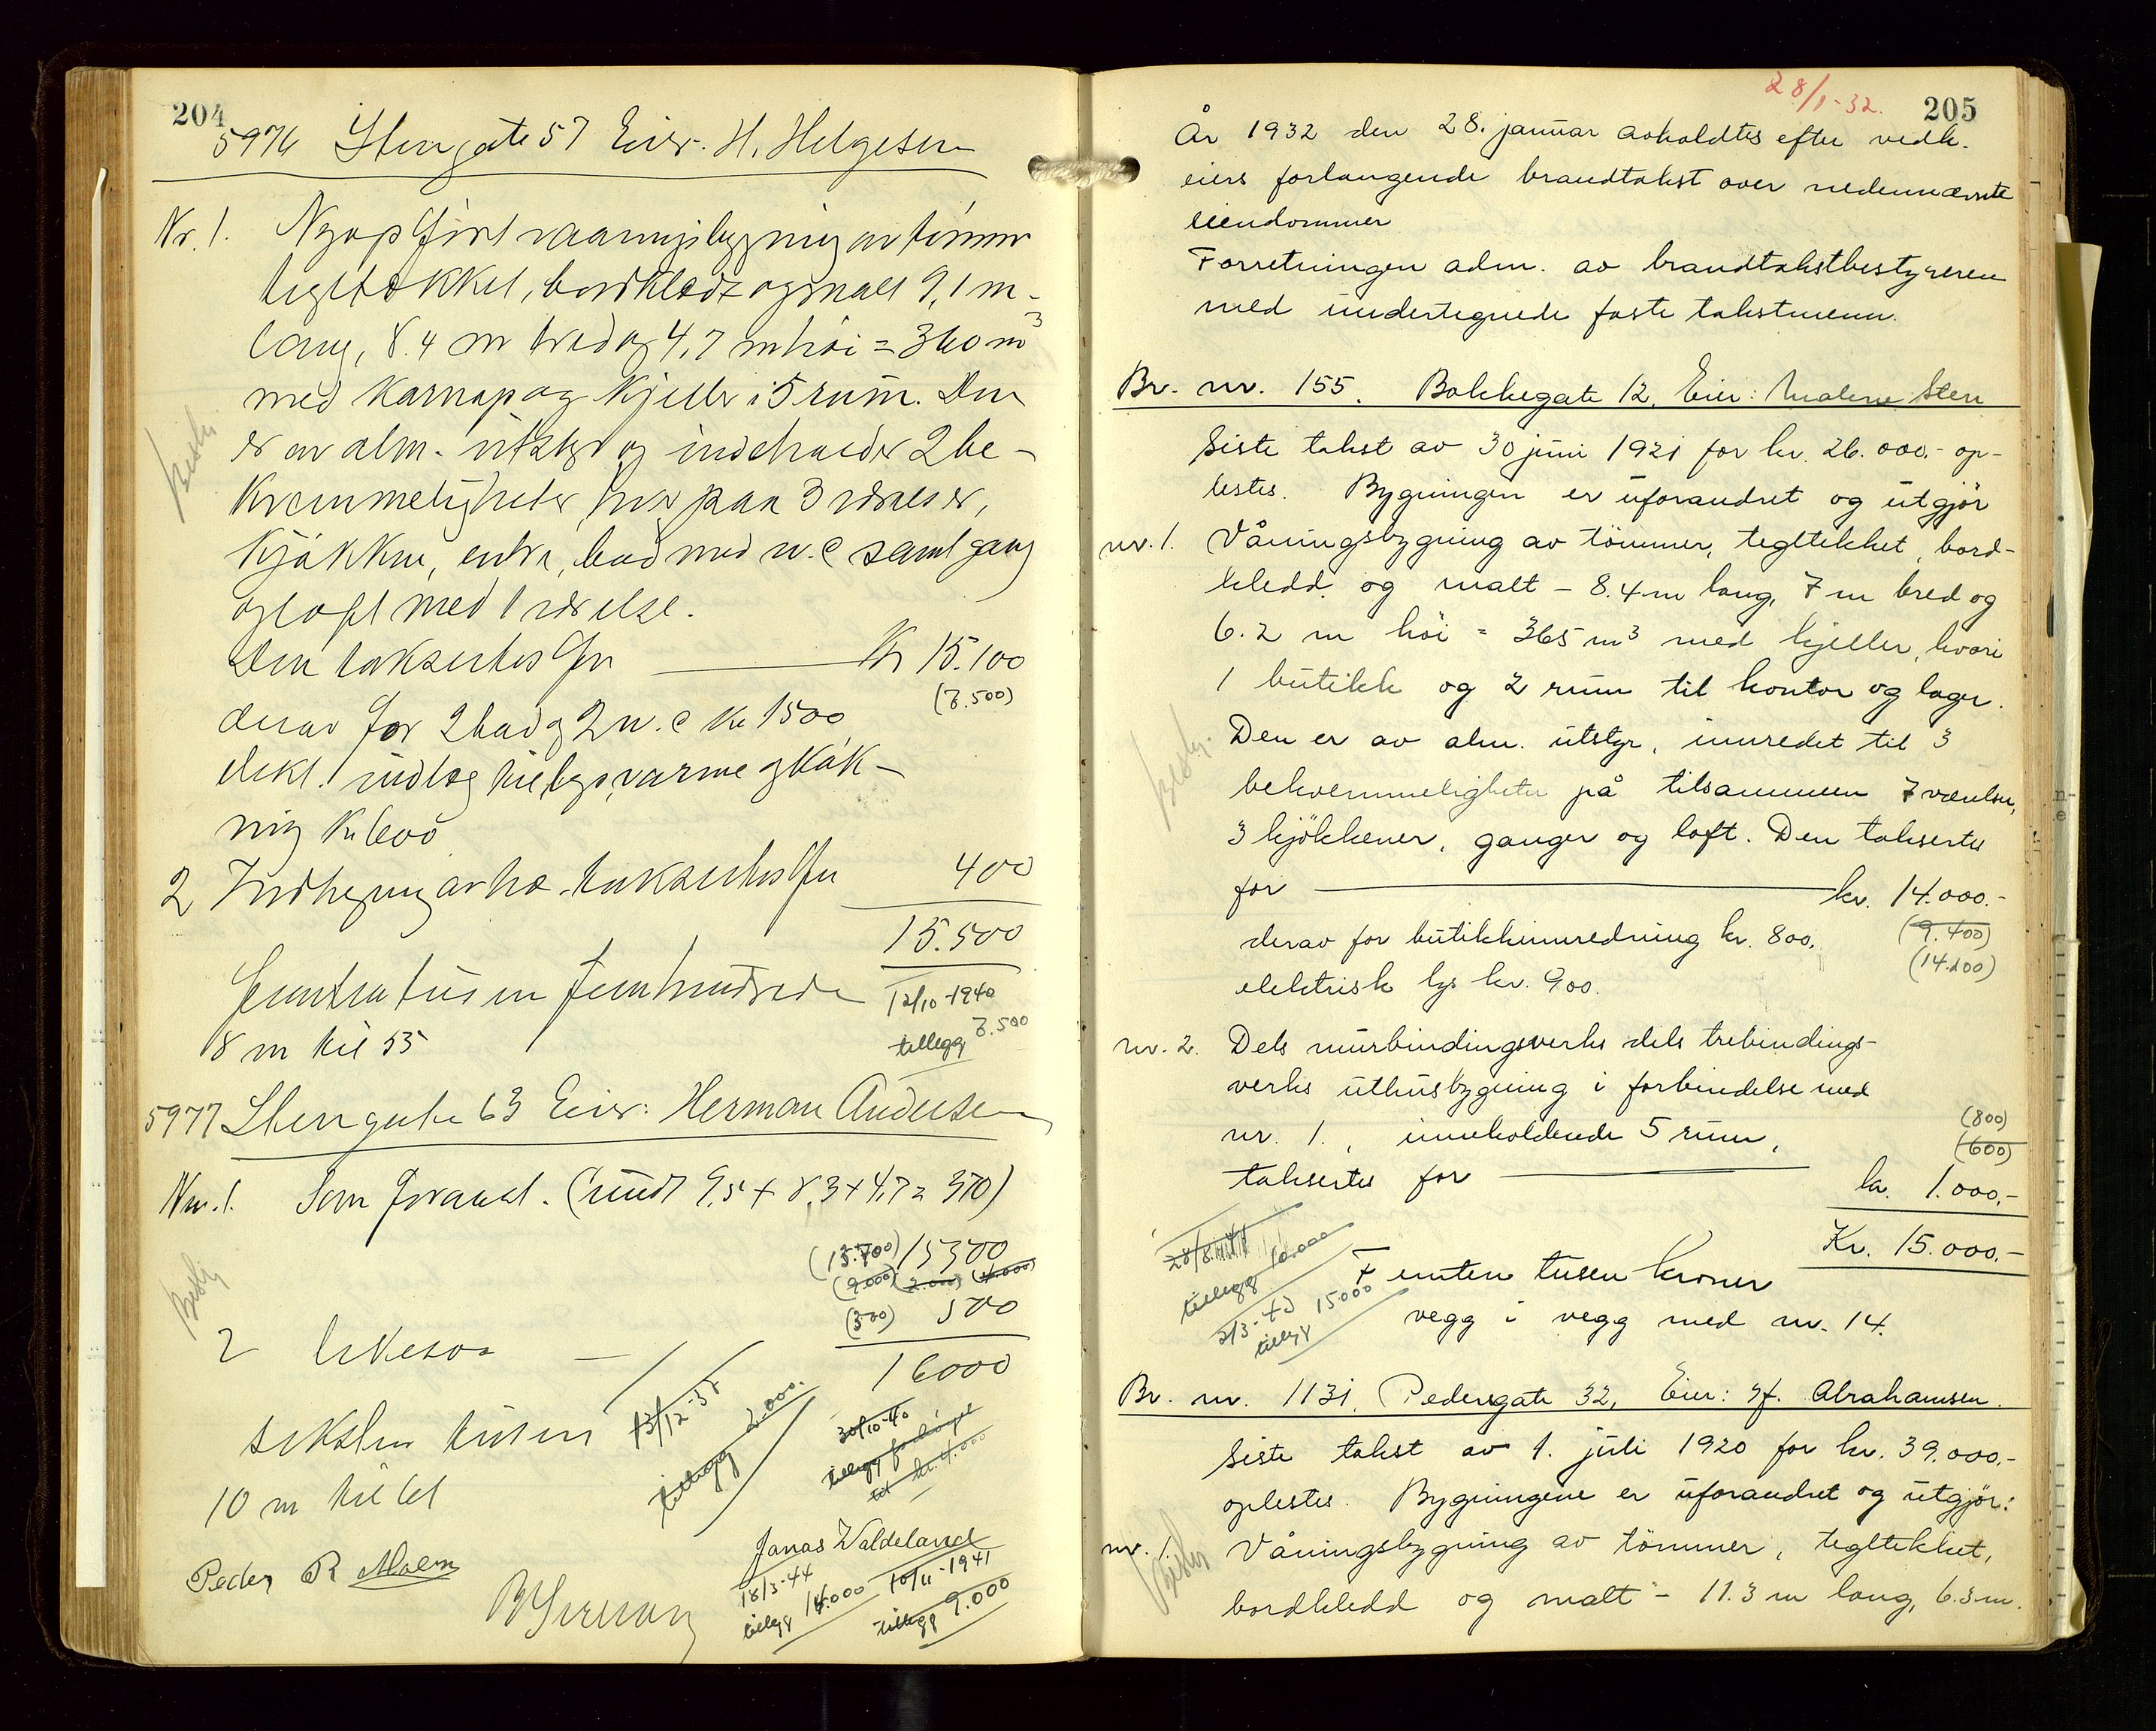 204
5976 Stengate 57 Eier. H. Helgesen
Nr. 1. Nyopført vaaningsbygning av tømmer
tegltækket, bordklædt og malt 9,1 m.
lang, 8.4 m bred og 4,7 m høi = 360 m³
med karnap og kjeller i 5 rum. Den
er av alm. utstyr og indeholder 2 be-
kvemmeligheter, hver paa 3 værelser,
kjøkken, entre, bad med w.c samt gang
og loft med 1 værelse.
Den takseertes for Kr 15.100
(7.500)
derav for 2 bad og 2 w.c kr 1500
elekt. indlæg til lys, varme og kok-
ning kr 600
2 Indhegning av træ takseertes for 400
15.500
Femten tusen femhundrede
12/10-1940
8 m til 55
tillegg 7.500
5977 Stengate 63 Eier: Herman Andersen
Nr. 1. Som forannævnt. (rundt 9,5 + 8,3 + 4,7 = 370)
(13.700) 15500
(9.000) (2.000) (4.000)
(300) 500
2
16000
seksten tusen
13/12-38
tillegg 2.000.
30/10-40
tillegg forhøiet
til kr. 4.000
10 m til 61
Peder R Malm
Jonas Waldeland
18/3-44
tillegg 14.000
10/11-1941
tillegg 9.000
28/1-32.
205
År 1932 den 28. januar avholdtes efter vedk.
eiers forlangende brandtakst over nedennævnte
eiendommer
Forretningen adm. av brandtakstbestyreren
med undertegnede faste takstmenn.
Br. nr. 155. Bakkegate 12. Eier: Malene Sten
Siste takst av 30 juni 1921 for kr. 26.000.- op-
lestes. Bygningen er uforandret og utgjör
nr. 1. Våningsbygning av tömmer, tegltekket, bord-
kledd og malt - 8.4 m lang, 7 m bred og
6.2 m höi = 365 m³ med kjeller, hvori
1 butikk og 2 rum til kontor og lager.
Den er av alm. utstyr, innredet til 3
bekvemmeligheter på tilsammen 7 værelser,
3 kjökkener, ganger og loft. Den takseres
for kr. 14.000.-
derav for butikkinnredning kr. 800.
(9.400)
(14.200)
elektrisk lys kr. 900.
nr. 2. Dels murbindingsverks dels trebindings-
verks uthusbygning i forbindelse med
nr. 1., inneholdende 5 rum,
(800)
(600)
takseres for kr. 1.000.-
Kr. 15.000.-
28/8-41
tillegg 10.000
Femten tusen kroner
2/3-43
tillegg 15000
vegg i vegg med nr. 14.
Br. nr. 1131. Pedersgate 32, Eier: H. Abrahamsen.
Siste takst av 1. juli 1920 for kr. 39.000.-
oplestes. Bygningene er uforandret og utgjör:
nr. 1. Våningsbygning av tömmer, tegltekket,
bordkledd og malt - 11.3 m lang, 6.3 m.